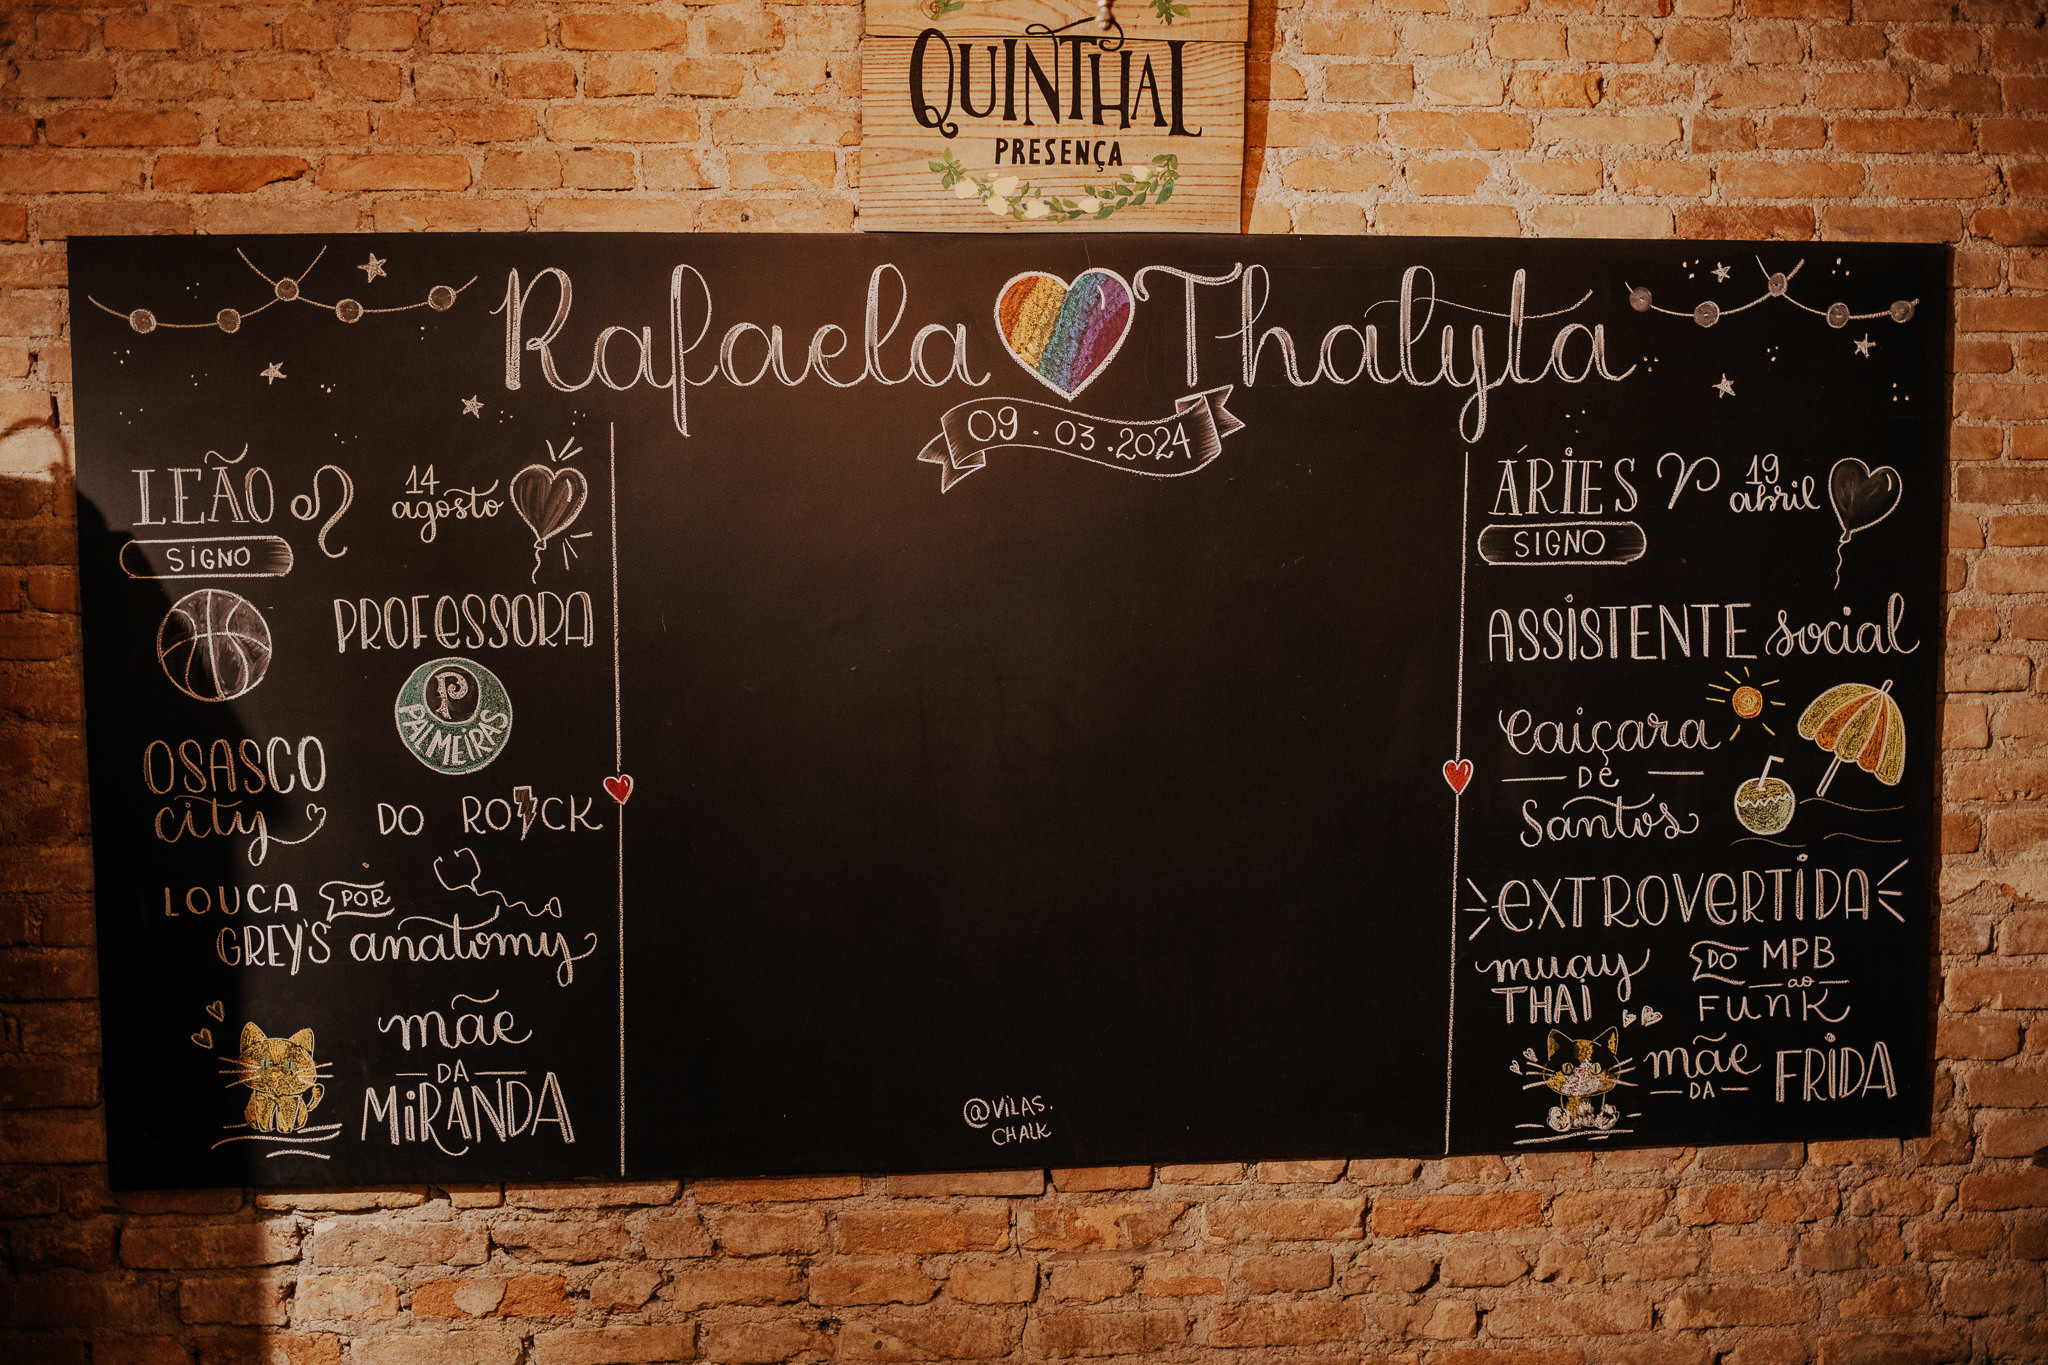 QUINTHAL
PRESENÇA
Rafaela Thalyta
09.03.2024
LEÃO
SIGNO
14
agosto
PROFESSORA
P
PALMEIRAS
OSASCO
city
DO ROCK
LOUCA POR
GREY'S anatomy
mãe
DA
MiRANDA
ÁRIES
SIGNO
19
abril
ASSISTENTE social
Caiçara
DE
Santos
EXTROVERTIDA
muay
THAI
DO MPB
ao
FUNK
mãe
DA
FRIDA
@VILAS.
CHALK